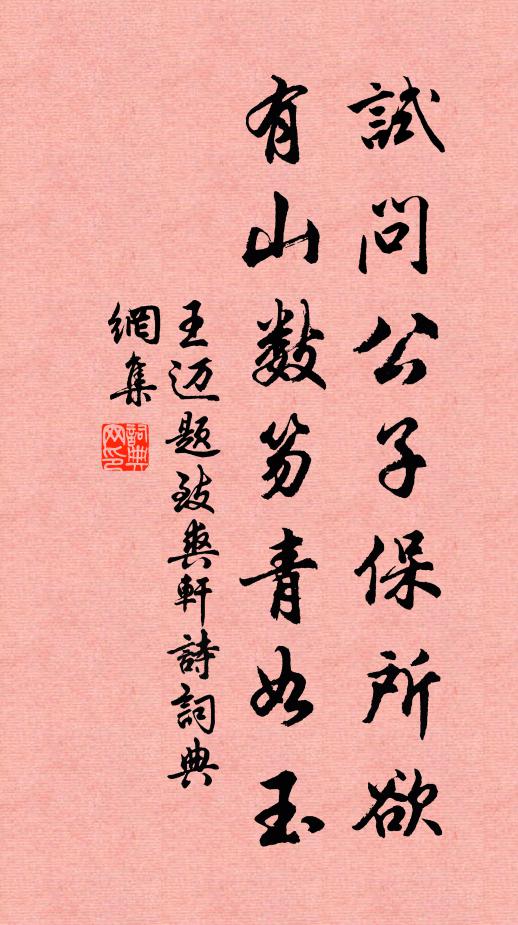 試問公子保所欲
有山數笏青如玉
王迈题致爽軒詩詞典
網集
詞典
网印